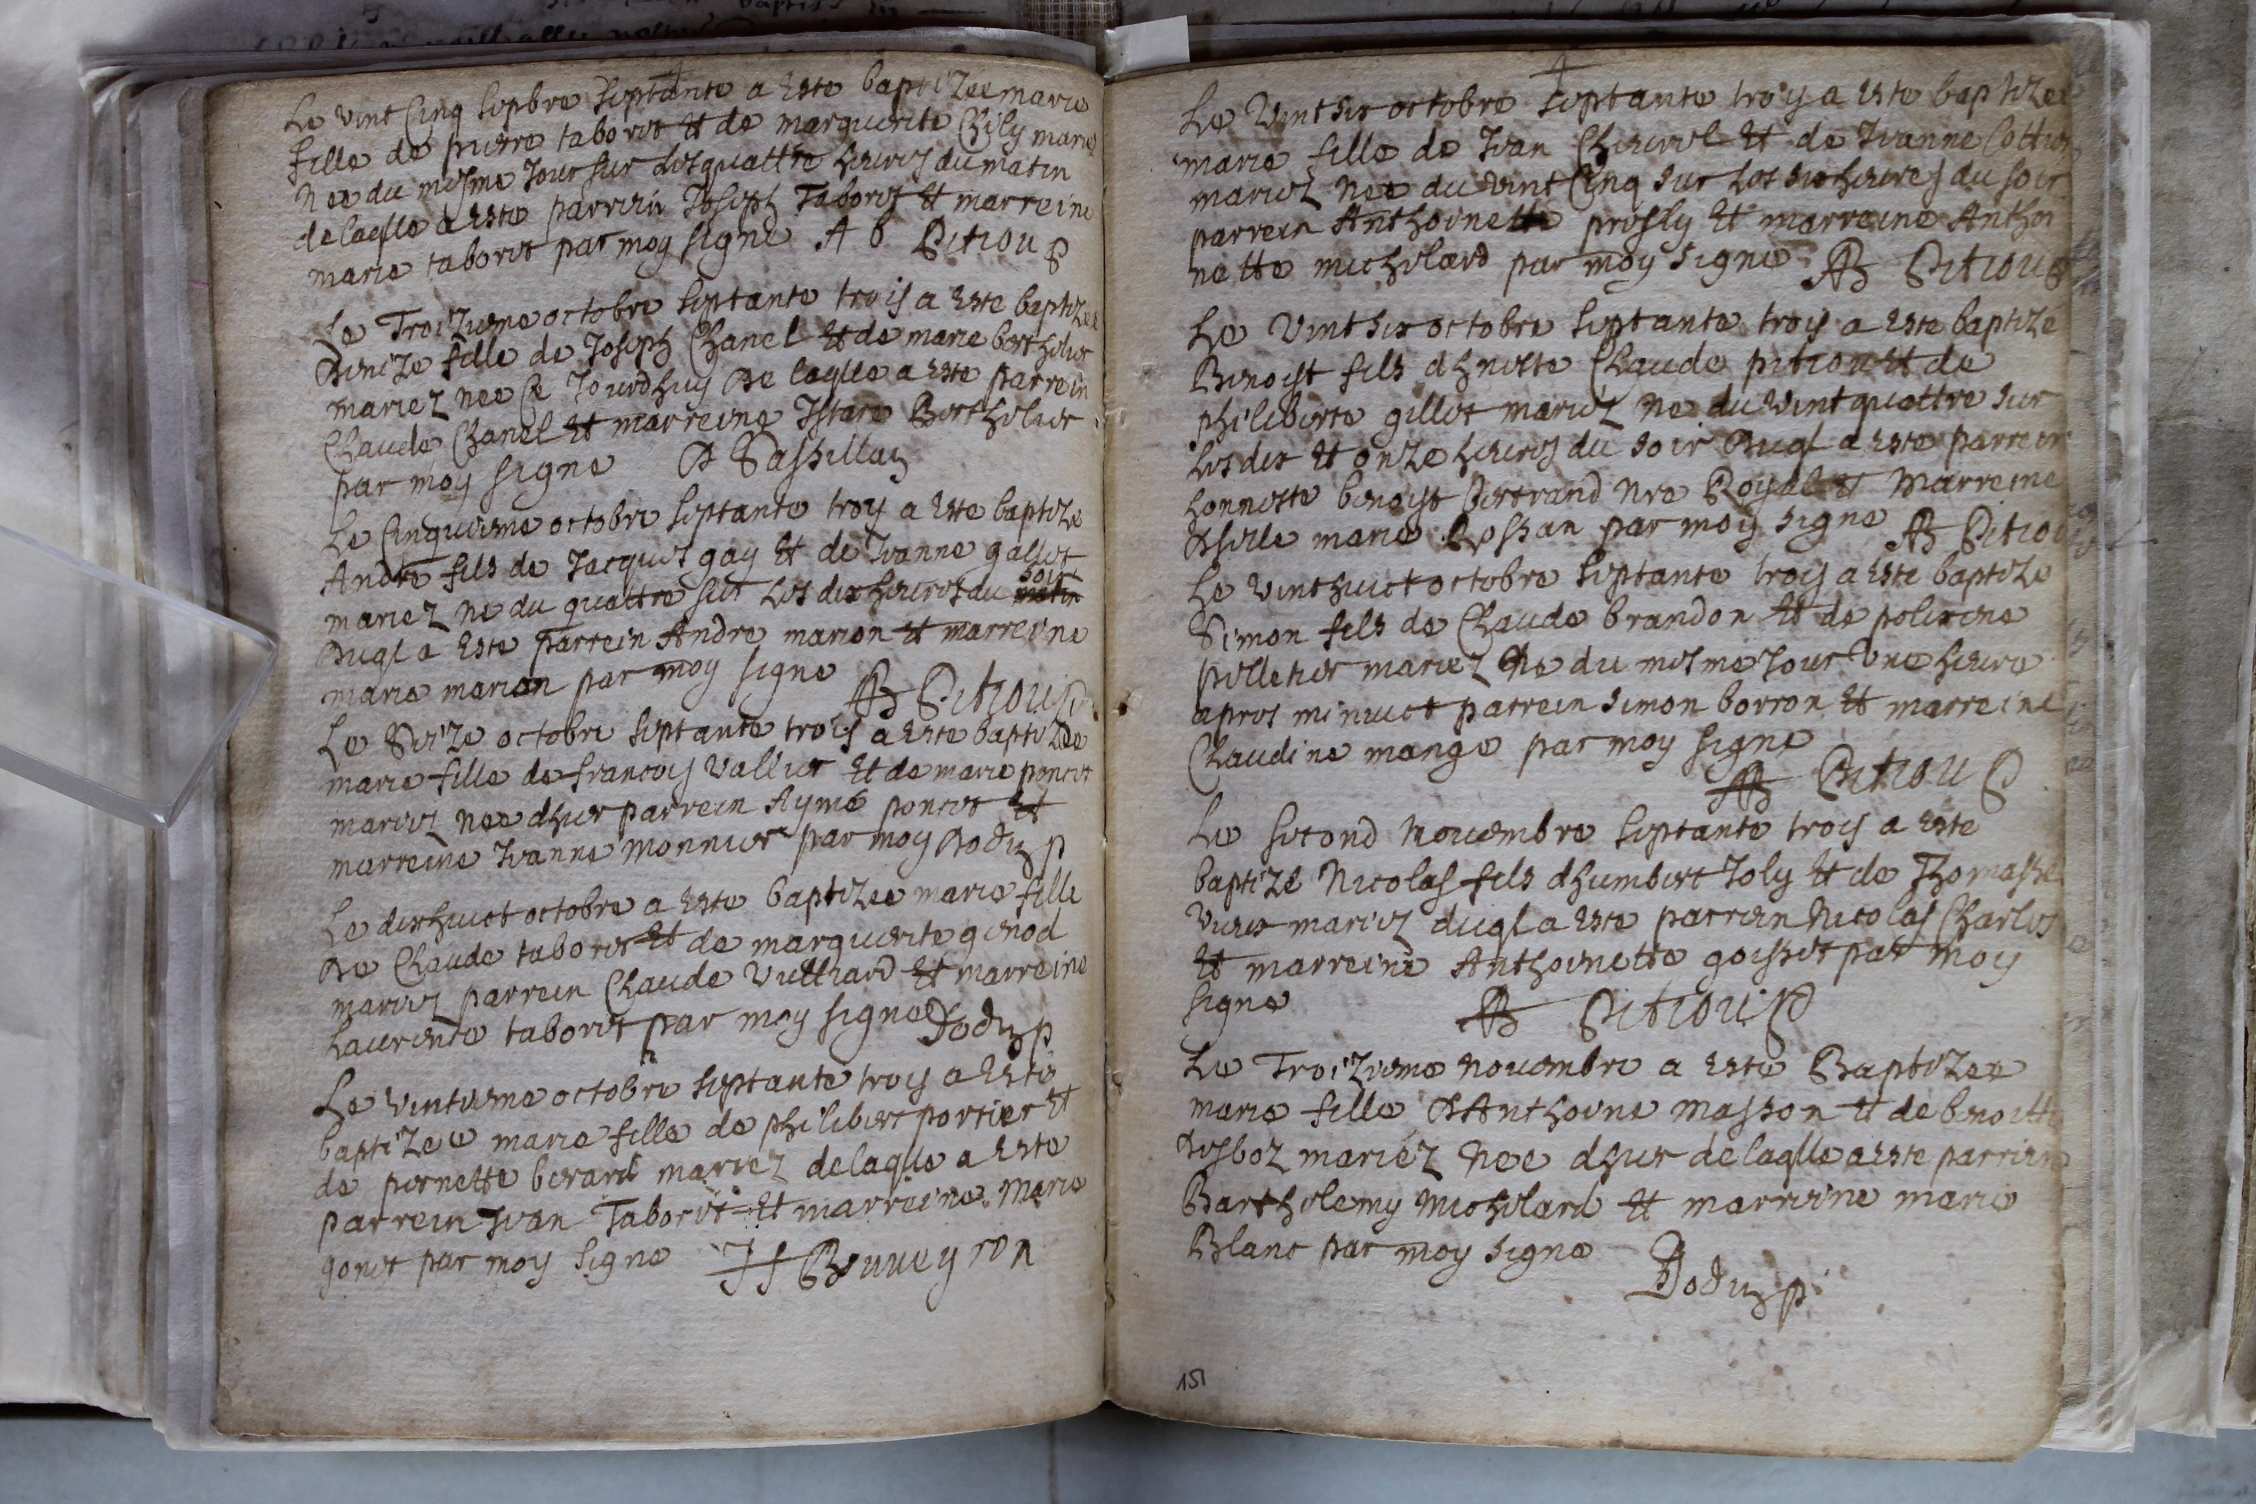 Le vint Cinq sepbre septante a este baptizee marie
fille de pierre taboret et de marguerite Chily marie
nee du mesme Jour sur les quattre heures du matin
de laqlle a este parrein Joseph Taboret et marreine
marie taboret par moy signe A B Petiou p
Le Troizieme octobre septante trois a este baptizee
Denize fille de Joseph Chanel et de marie berthelier
mariez nee Ce Jourdhuy De laqlle a este parrein
Claude Chanel et marreine Berthelier
par moy signe
Le Cinquieme octobre septante troy a este baptize
Andre fils de Jacques gay et de Jeanne gallet
mariez ne du quattre sur les dix heures du soir matin
Duql a este parrein Andre marion et marreine
marie marion par moy signe AB Petiou p
Le Seize octobre septante trois a este baptizee
marie fille de francois Vallier et de marie poncet
mariez nee dhier parrein Ayme poncet et
marreine Jeanne monnier par moy Dodu p
Le dixhuict octobre a este baptizee marie fille
De Claude taboret et de marguerite genod
mariez parrein Claude Vulliard et marreine
Laurente taboret par moy signe Dodu p
Le vintieme octobre septante troy a este
baptizee marie fille de philibert portier et
de pernette berard mariez de laqlle a este
parrein Jean Taboret et marreine Marie
gonet par moy signe Buueyron
Le Vintsix octobre septante troy a este baptizee
marie fille de Jean et de Jeanne Cottier
mariez nee du vint Cinq sur les six heures du soir
parrein Anthoinette et marreine Anthoi
nette michelard par moy signe AB Petiou p
Le Vintsix octobre septante trois a este baptize
Benoist fils dhneste Claude petiou et de
philiberte gillet mariez ne du vint quattre sur
les dix et onze heures du soir Duql a este parrein
honneste benoist bertrand Nre Royal et Marreine
marie Rossan par moy signe AB Petiou
Le vint huict octobre septante troy a este baptize
Simon fils de Claude brandon et de polixene
pelletier mariez Ne du mesme Jour Une heure
apres minuict parrein simon borron et marreine
Claudine mange par moy signe
AB Petiou p
Le second nouembre septante trois a este
baptize Nicolas fils dhumbert Joly et de Thomasse
mariez duql a este parrein Nicolas Charles
et marreine Anthoinette goisset par moy
signe AB Petiou p
Le Troizieme nouembre a este Baptizee
marie fille DAnthoine masson et de benoitte
desboz mariéz Nee dhier de laqlle a este parrein
Barthelemy Michelard et marreine marie
Blanc par moy signe
Dodu p
151